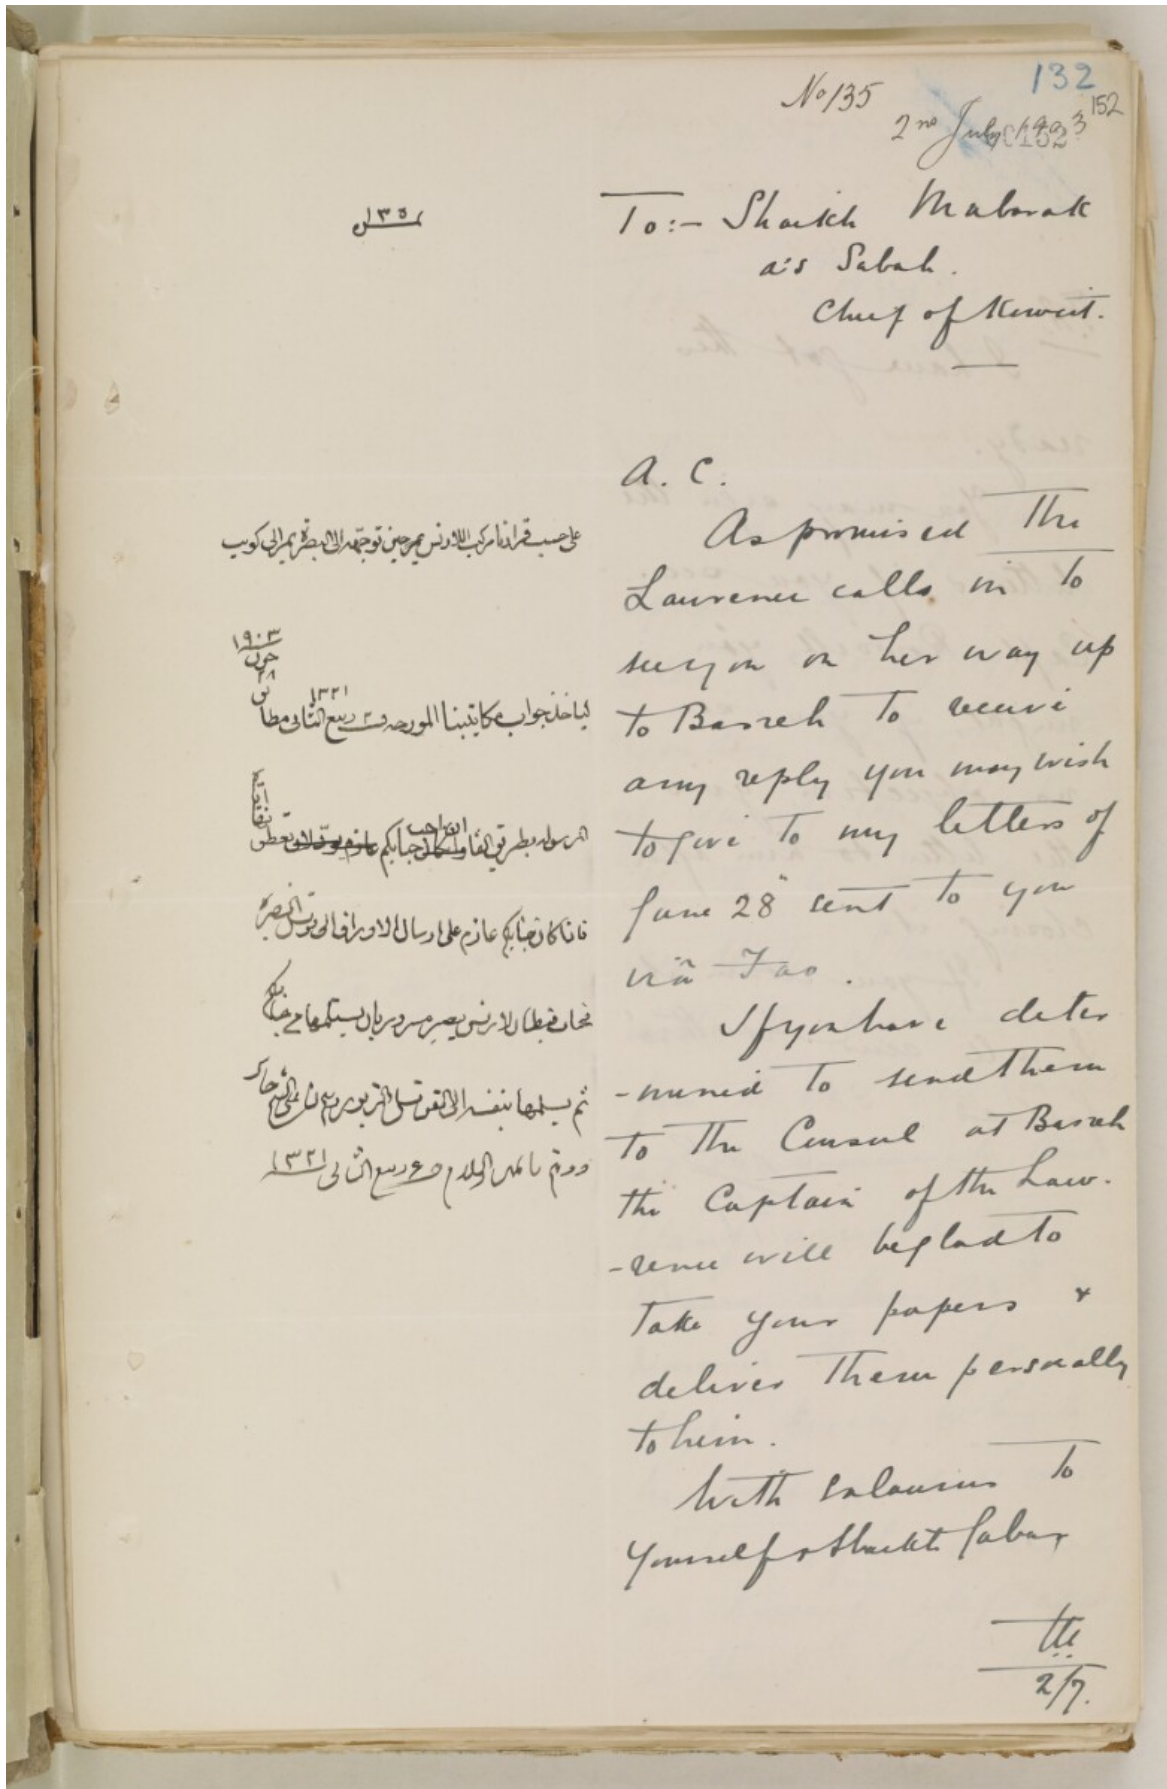 132
No 135
152
2nd July 1903
To:- Shaikh Mubarak
as Sabah.
Chief of Koweit.
A. C.
As promised The
Lawrence calls in to
see you on her way up
to Basreh to receive
any reply you may wish
to give to my letters of
June 28th sent to you
viâ Fao.
If you have deter
-mined to send them
to the Consul at Basreh
the Captain of the Law-
-rence will be glad to
take your papers &
deliver them personally
to him.
With salaams to
Yourself & Shaikh Jabar
2/7.
١٣٥
على حسب قرارنا مركب اللارنس يمر حين توجهه الى البصرة يمر الى كويت
١٩٠٣
جون
٢٨
١٣٢١
لياخذ جواب مكاتيبنا المورخه ٢ ربيع الثانى مطابق
المرسوله بطريق الفاو جنابكم
فاذا كان جنابكم عازم على ارسال الاوراق الى قونسل البصرة
قبطان لارنس يصير مسرور بان يستلمها من جنابكم
ثم يسلمها بنفسه الى القونسل
ودمتم والسلام ٥ ربيع الثانى ١٣٢١